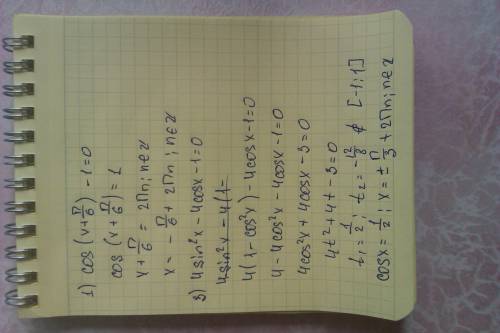 1) cos (x + П/6) - 1 = 0
cos (x + П/6) = 1
x + П/6 = 2Пn; n∈z
x = - П/6 + 2Пn; n∈z
3) 4 sin²x - 4cosx - 1 = 0
4 sin²x - 4(1-
4(1 - cos²x) - 4cosx - 1 = 0
4 - 4cos²x - 4cosx - 1 = 0
4cos²x + 4cosx - 3 = 0
4t² + 4t - 3 = 0
t₁ = 1/2; t₂ = - 12/8 ∉ [-1; 1]
cosx = 1/2; x = ± П/3 + 2Пn; n∈z